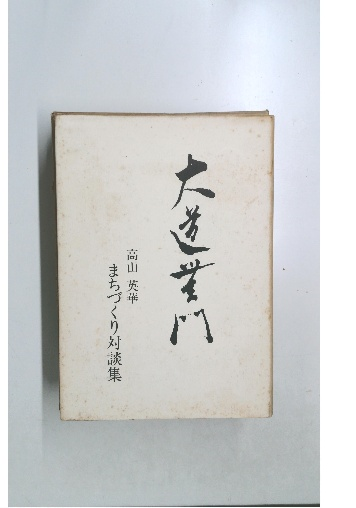 大道無門
高山 英華
まちづくり対談集